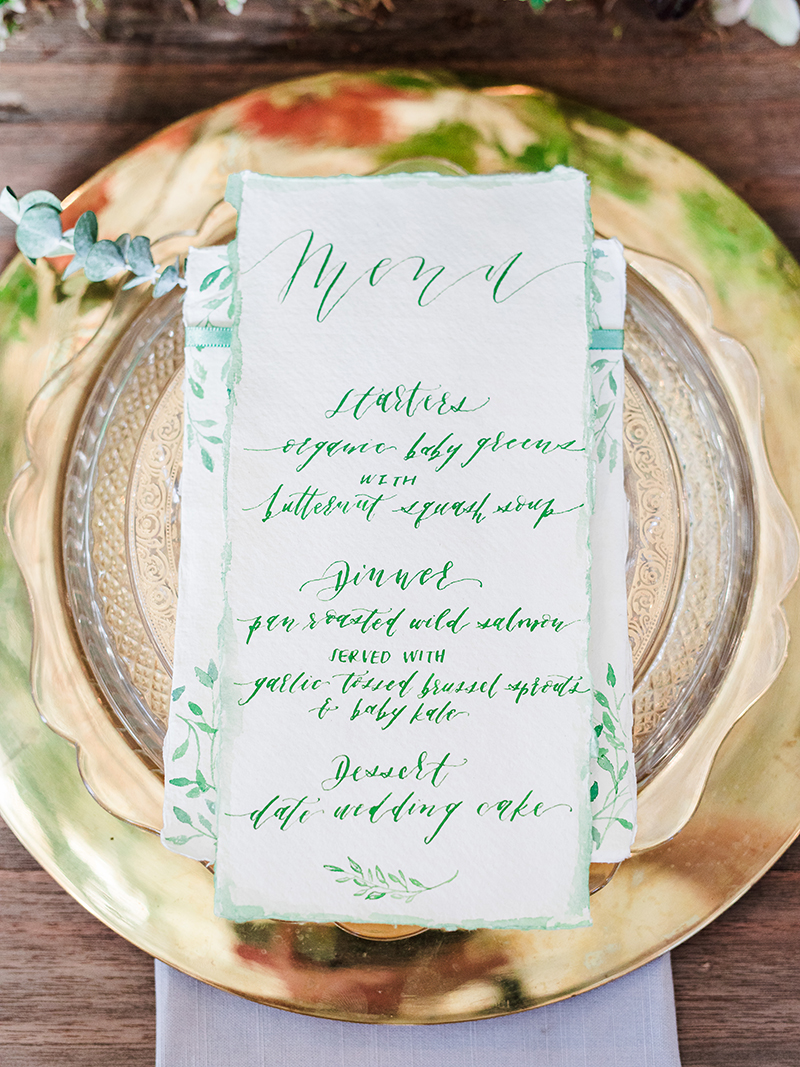 Menu
Starters
organic baby greens
WITH
butternut squash soup
Dinner
pan roasted wild salmon
SERVED WITH
garlic tossed brussel sprouts
& baby kale
Dessert
date wedding cake